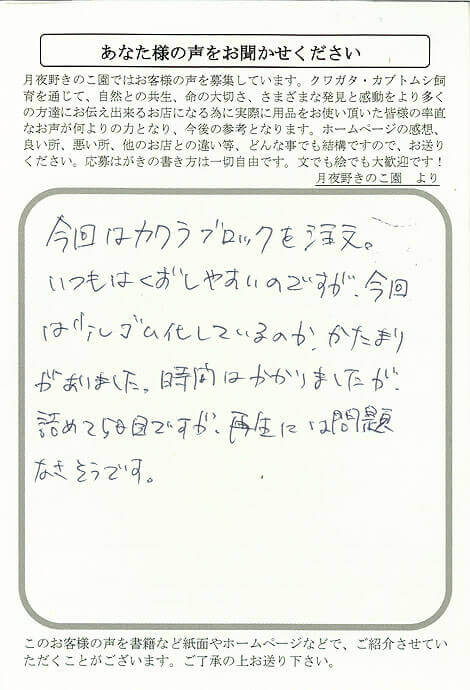 あなた様の声をお聞かせください
月夜野きのこ園ではお客様の声を募集しています。クワガタ・カブトムシ飼
育を通じて、自然との共生、命の大切さ、さまざまな発見と感動をより多く
の方達にお伝え出来るお店になる為に実際に用品をお使い頂いた皆様の率直
なお声が何よりの力となり、今後の参考となります。ホームページの感想、
良い所、悪い所、他のお店との違い等、どんな事でも結構ですので、お送り
ください。応募はがきの書き方は一切自由です。文でも絵でも大歓迎です!
月夜野きのこ園 より
今回はカワラブロックを注文。
いつもはくずしやすいのですが、今回
は ゴム化しているのか、かたまり
がありました。時間はかかりましたが、
詰めて5日目ですが、再生には問題
なさそうです。
このお客様の声を書籍など紙面やホームページなどで、ご紹介させてい
ただくことがございます。ご了承の上お送り下さい。